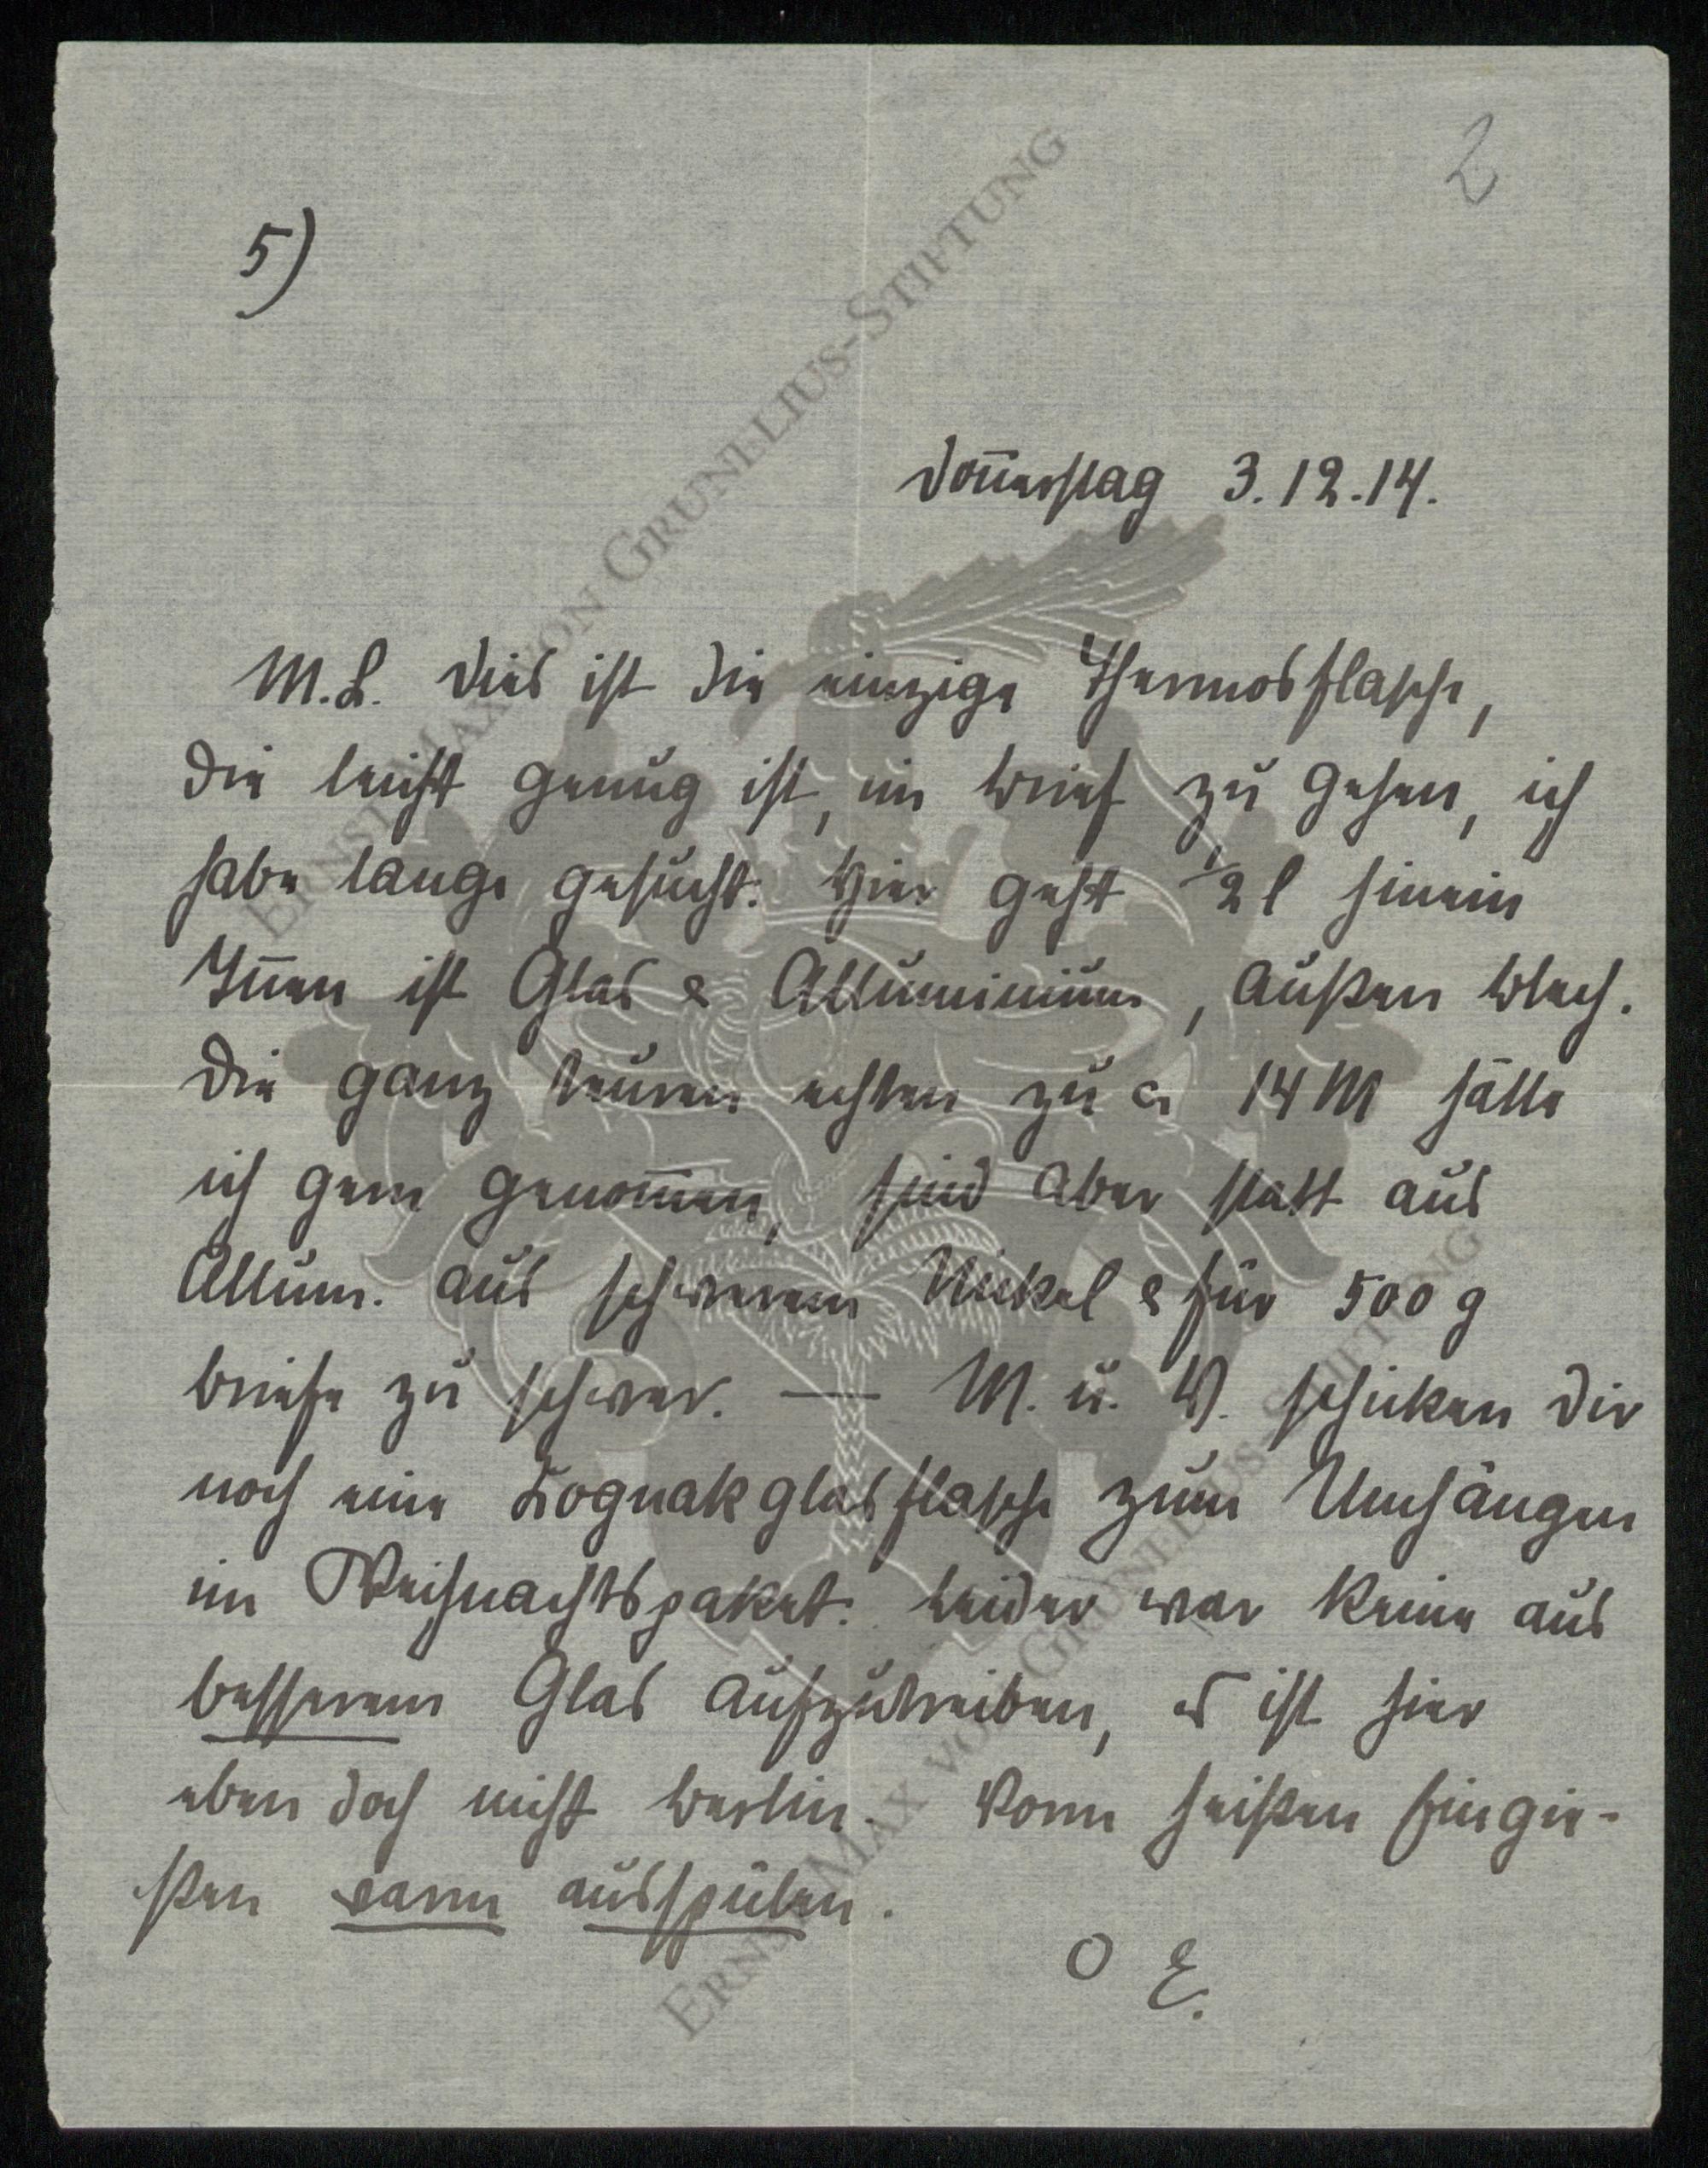 2
5)
Donnerstag 3.12.14.
M.L. Dies ist die einzige Thermosflasche,
die leicht genug ist, im Brief zu gehen, ich
habe lange gesucht. Hier geht ½ l hinein
Innen ist Glas & Alluminium, außen Blech.
Die ganz teuren echten zu ca 14 M hätte
ich gern genommen, sind aber statt aus
Allum. aus schwerem Nickel & für 500 g
Briefe zu schwer. — M. u. W. schicken dir
noch eine Kognakglasflasche zum Umhängen
im Weihnachtspaket. Leider war keine aus
besserem Glas aufzutreiben, es ist hier
eben doch nicht Berlin. Vorm heißen Eingie-
ßen warm ausspülen.
O E.
ERNST MAX VON GRUNELIUS-STIFTUNG
ERNST MAX VON GRUNELIUS-STIFTUNG